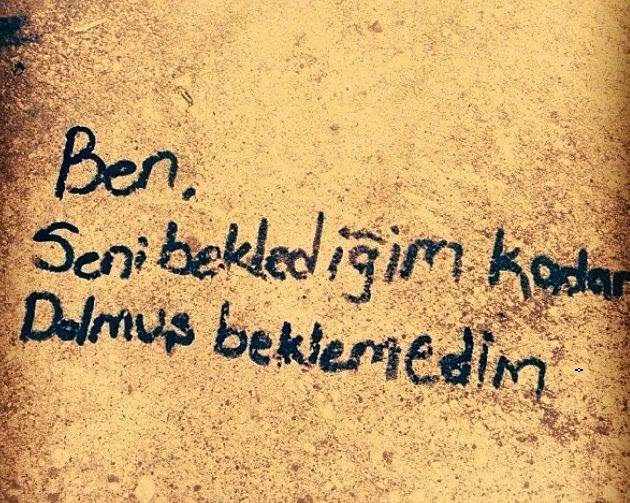 Ben.
Seni beklediğim kadar
Dolmuş beklemedim